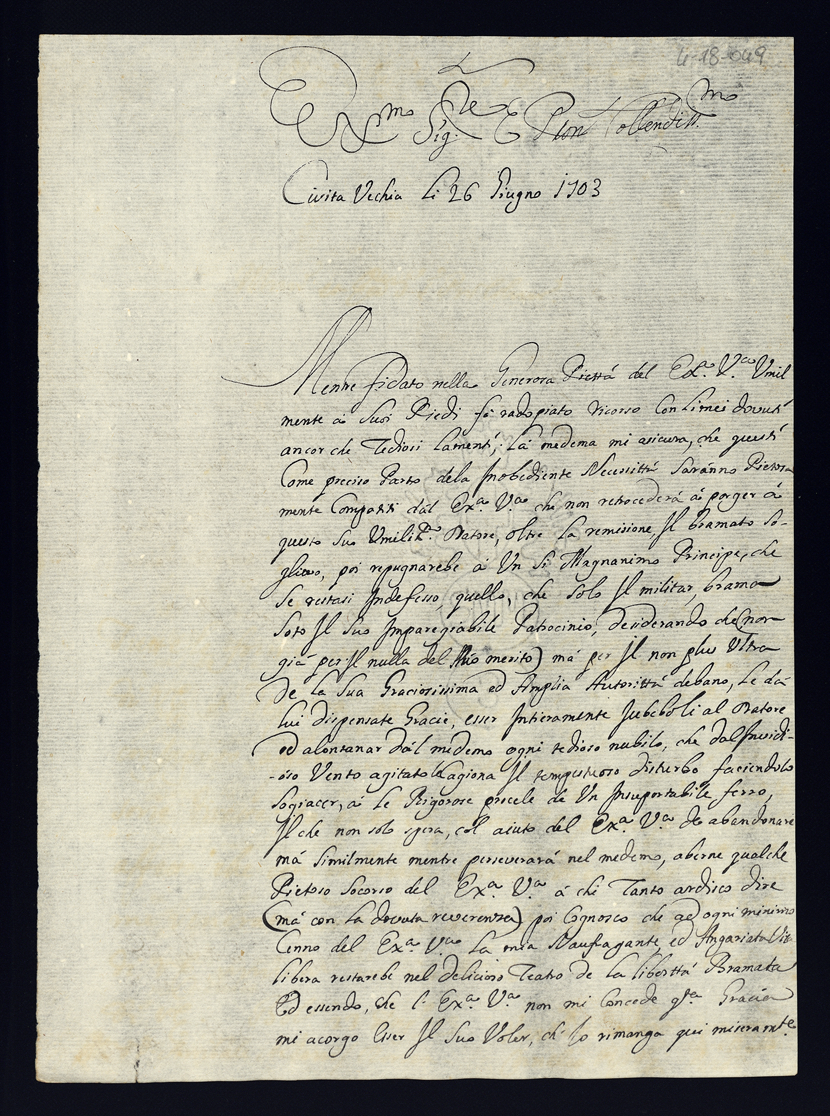 4-18-049
Ex.mo Sig.re E Pron Collendiss.mo
Civita Vechia Li 26 Giugno 1703
Mentre fidato nella Generosa Pietta del Ecc.a V.a Umil
mente ai Suoi Piedi fò radopiato ricorso con Limei dovuti
ancor che Tediosi Lamenti; La medema mi asicura, che questi
Come preciso Parto dela Inobediente Necessittà Saranno Pietosa
mente Compatiti dàl Ex.a V.a che non retrocederà à porger à
questo Suo Umiliss.o Oratore, oltre La remisione, Il bramato So-
glievo, poi repugnarebe à Un Si Magnanimo Principe, che
Se restasi Indefesso, quello, che Solo Il militar, brama
Soto Il Suo Imparegiabile Patrocinio, desiderando che (non
già per Il nulla del Mio merito) mà per Il non plus Ultra
De La Sua Graciosissima ed Amplia Autorittà debano, Le dà
Lui dispensate Gracie, esser Intieramente al Oratore
ed alontanar dàl medemo ogni tedioso nubilo, che dal Invidi-
-oso Vento agitato Cagiona Il tempestuoso disturbo faciendolo
Sogiacer, ài Le Rigorose procele de Un Insuportabile ferro,
Il che non solo spera, col aiuto del Ex.a V.a de abandonare
mà Similmente mentre perseverarà nel medemo, aberne qualche
Pietoso Socorso del Ex.a V.a à chi Tanto ardisco dire
(mà con La dovuta reverenza) poi Cognosco che ad ogni minimo
Cenno del Ex.a V.a La mia Naufragante, ed Angariata Vit
libera restarebe nel delicioso Teatro de La libertta Bramata
Ed essendo, che l' Ex.a V.a non mi Concede q.sta Gracia
mi acorgo Esser Il Suo Voler, ch' Io rimanga qui miseram.te